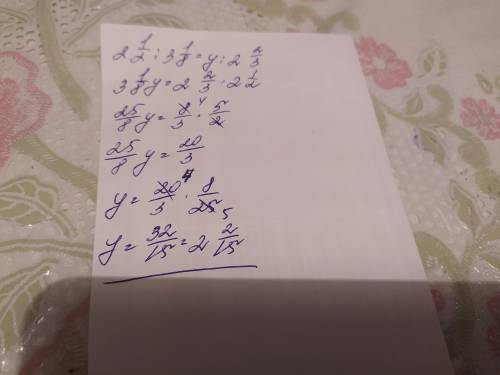 2 1/2 : 3 1/8 = y : 2 2/3
3 1/8 y = 2 2/3 · 2 1/2
25/8 y = 8/3 4 · 5/2
25/8 y = 20/3
y = 20/3 4 · 8/25 5
y = 32/15 = 2 2/15